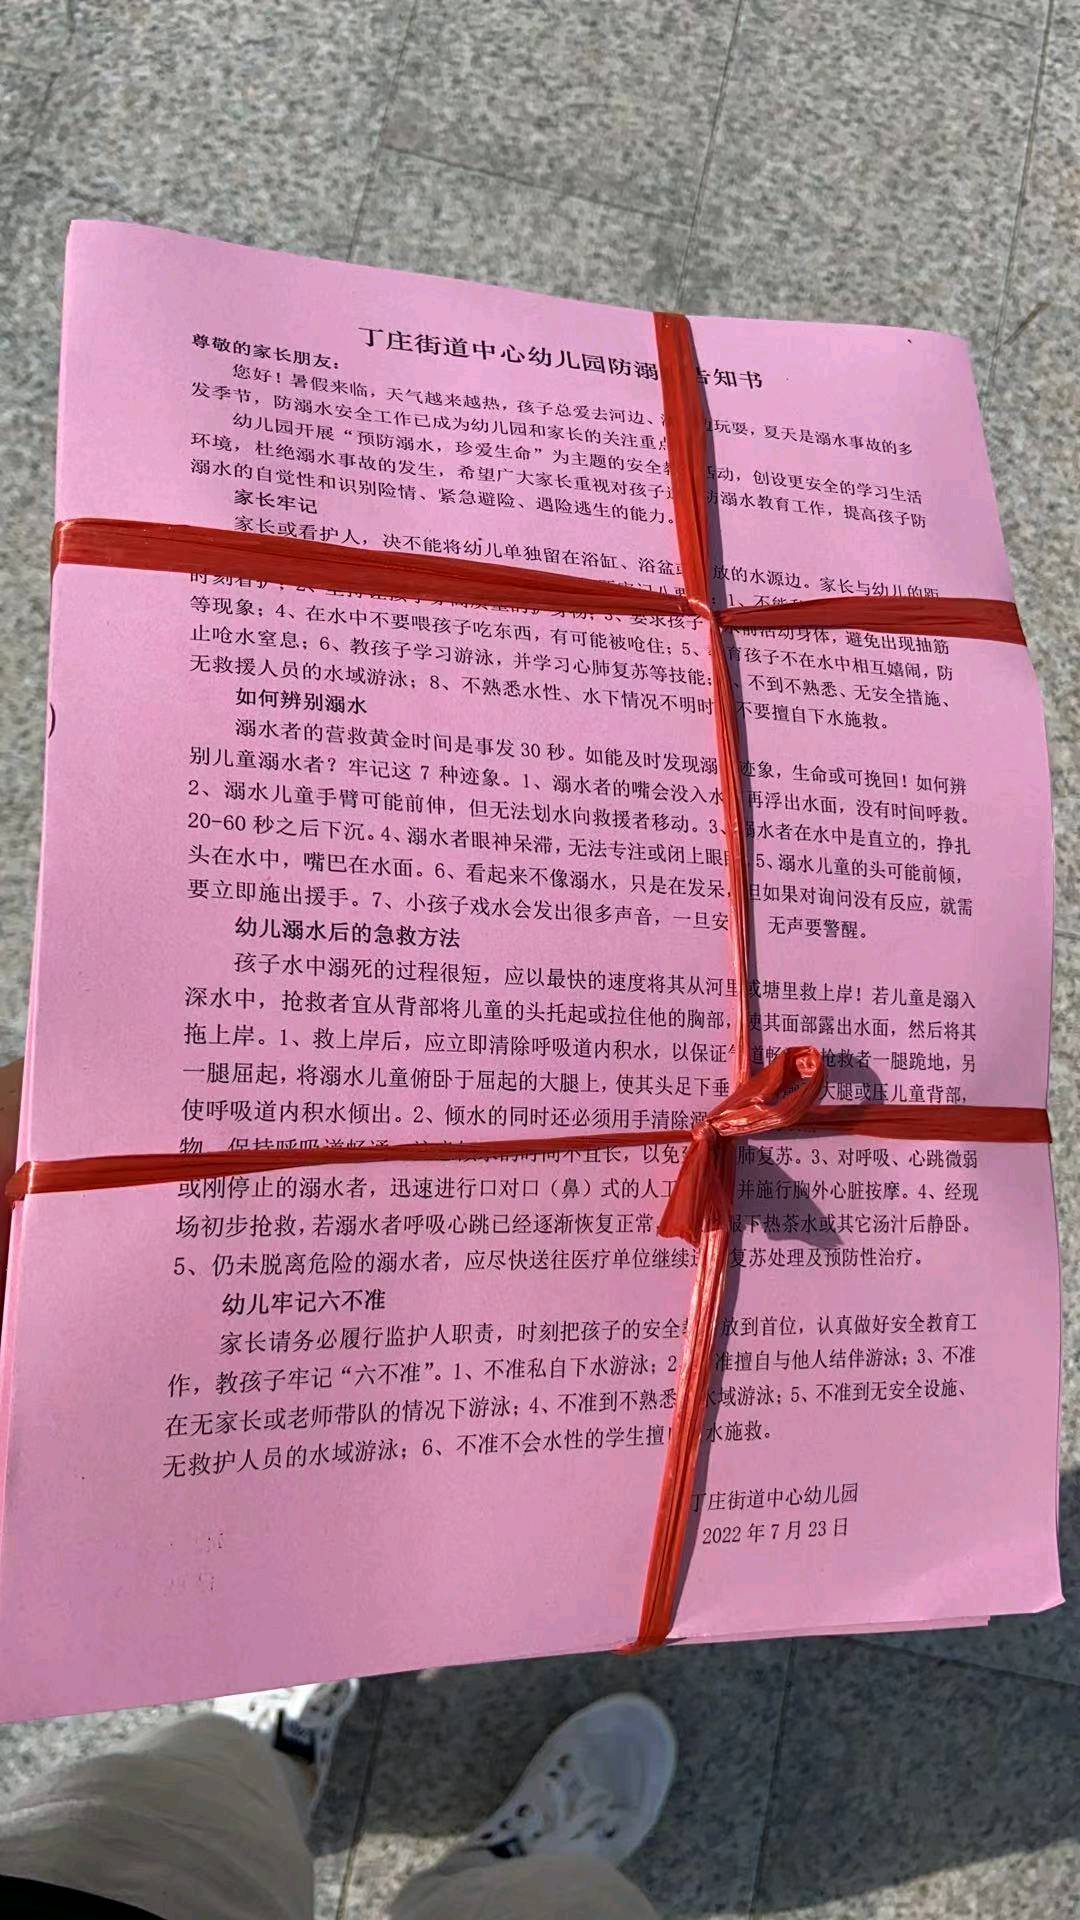 丁庄街道中心幼儿园防溺 告知书
尊敬的家长朋友：
您好！暑假来临，天气越来越热，孩子总爱去河边、 玩耍，夏天是溺水事故的多
发季节，防溺水安全工作已成为幼儿园和家长的关注重点
幼儿园开展“预防溺水，珍爱生命”为主题的安全教 活动，创设更安全的学习生活
环境，杜绝溺水事故的发生，希望广大家长重视对孩子 防溺水教育工作，提高孩子防
溺水的自觉性和识别险情、紧急避险、遇险逃生的能力。
家长牢记
家长或看护人，决不能将幼儿单独留在浴缸、浴盆或 放的水源边。家长与幼儿的距
时刻看护；2、 3、要求孩子 前活动身体，避免出现抽筋
等现象；4、在水中不要喂孩子吃东西，有可能被呛住；5、 育孩子不在水中相互嬉闹，防
止呛水窒息；6、教孩子学习游泳，并学习心肺复苏等技能； 、不到不熟悉、无安全措施、
无救援人员的水域游泳；8、不熟悉水性、水下情况不明时 不要擅自下水施救。
如何辨别溺水
溺水者的营救黄金时间是事发30秒。如能及时发现溺 迹象，生命或可挽回！如何辨
别儿童溺水者？牢记这7种迹象。1、溺水者的嘴会没入水 再浮出水面，没有时间呼救。
2、溺水儿童手臂可能前伸，但无法划水向救援者移动。3、 溺水者在水中是直立的，挣扎
20-60秒之后下沉。4、溺水者眼神呆滞，无法专注或闭上眼 5、溺水儿童的头可能前倾，
头在水中，嘴巴在水面。6、看起来不像溺水，只是在发呆， 但如果对询问没有反应，就需
要立即施出援手。7、小孩子戏水会发出很多声音，一旦安 无声要警醒。
幼儿溺水后的急救方法
孩子水中溺死的过程很短，应以最快的速度将其从河里或塘里救上岸！若儿童是溺入
深水中，抢救者宜从背部将儿童的头托起或拉住他的胸部， 使其面部露出水面，然后将其
拖上岸。1、救上岸后，应立即清除呼吸道内积水，以保证气道畅 抢救者一腿跪地，另
一腿屈起，将溺水儿童俯卧于屈起的大腿上，使其头足下垂 大腿或压儿童背部，
使呼吸道内积水倾出。2、倾水的同时还必须用手清除溺
物，保持呼吸道畅通。 的时间不宜长，以免 肺复苏。3、对呼吸、心跳微弱
或刚停止的溺水者，迅速进行口对口（鼻）式的人工 并施行胸外心脏按摩。4、经现
场初步抢救，若溺水者呼吸心跳已经逐渐恢复正常， 服下热茶水或其它汤汁后静卧。
5、仍未脱离危险的溺水者，应尽快送往医疗单位继续 复苏处理及预防性治疗。
幼儿牢记六不准
家长请务必履行监护人职责，时刻把孩子的安全 放到首位，认真做好安全教育工
作，教孩子牢记“六不准”。1、不准私自下水游泳；2 准擅自与他人结伴游泳；3、不准
在无家长或老师带队的情况下游泳；4、不准到不熟悉 水域游泳；5、不准到无安全设施、
无救护人员的水域游泳；6、不准不会水性的学生擅 水施救。
丁庄街道中心幼儿园
2022年7月23日